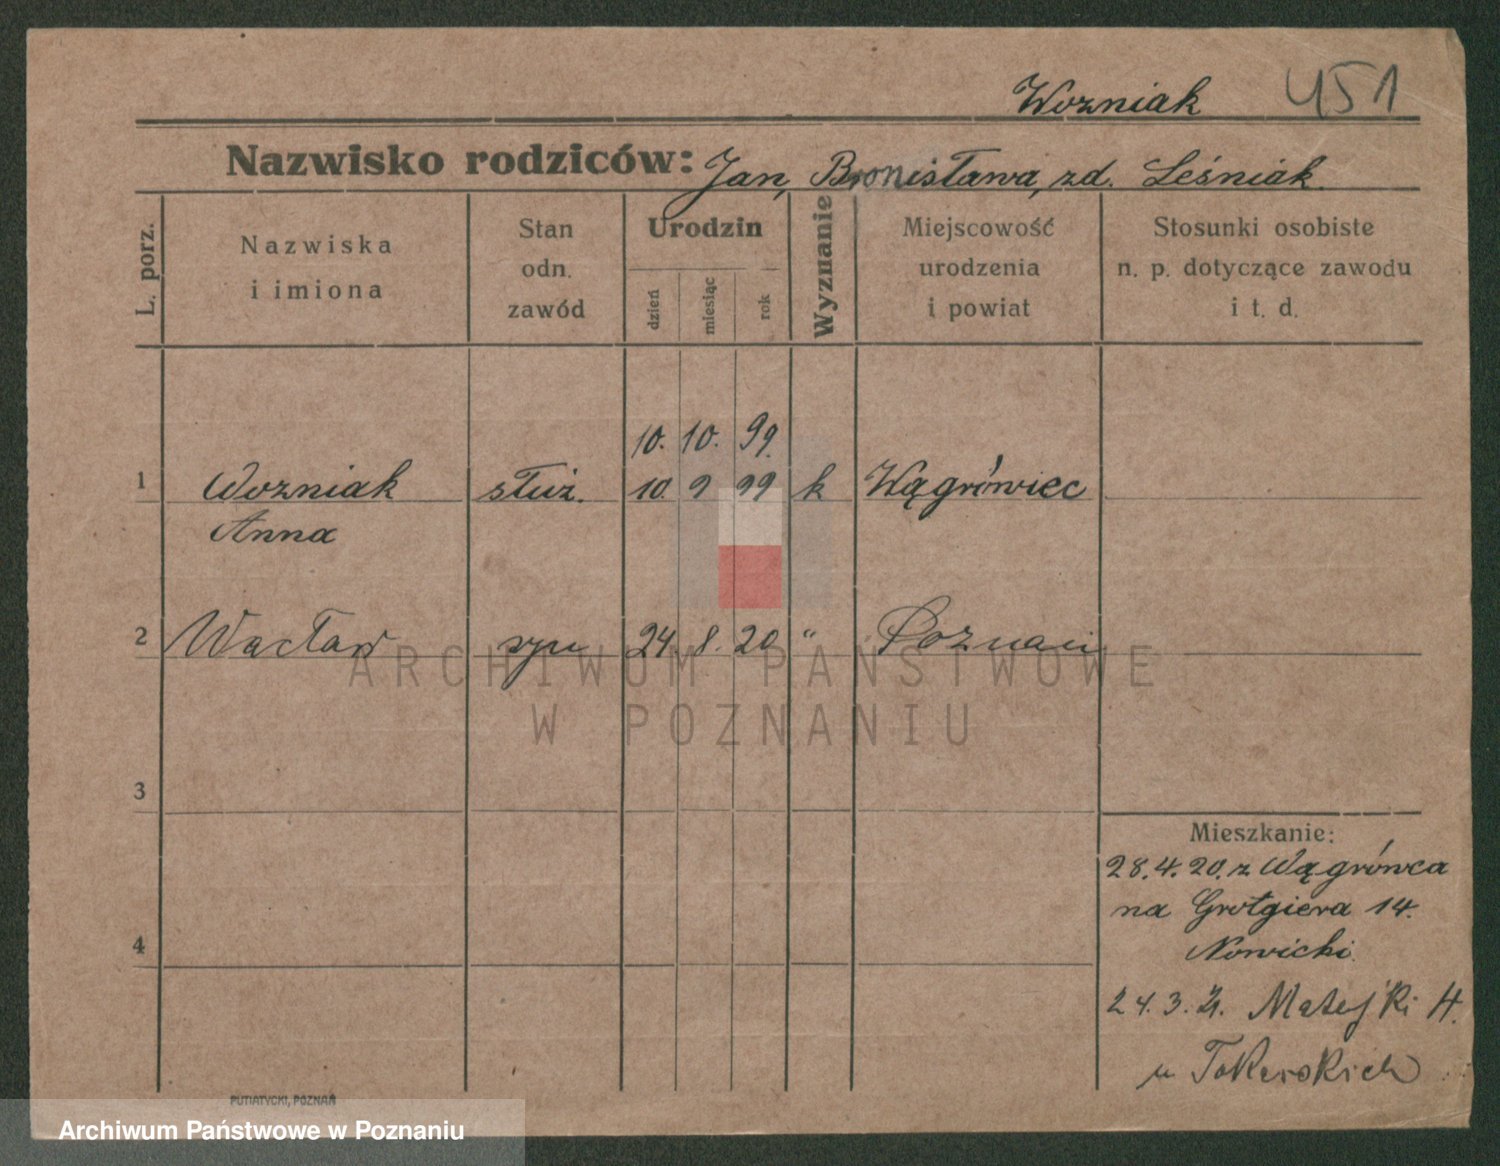 Wozniak 451
Nazwisko rodziców: Jan, Bronisława, zd. Leśniak.
L. porz.
Nazwiska
i imiona
Stan
odn.
zawód
Urodzin
dzień
miesiąc
rok
Wyznanie
Miejscowość
urodzenia
i powiat
Stosunki osobiste
n. p. dotyczące zawodu
i t. d.
10. 10. 99.
1 Wozniak służ. 10. 9 99 k Wągrówiec
Anna
2 Wacław syn 24. 8. 20 " Poznań
ARCHIWUM PAŃSTWOWE
W POZNANIU
3
Mieszkanie:
28.4.20. z Wągrówca
na Grotgiera 14.
4
Nowicki.
24.3.21. Matejki
u
PUTIATYCKI, POZNAŃ
Archiwum Państwowe w Poznaniu